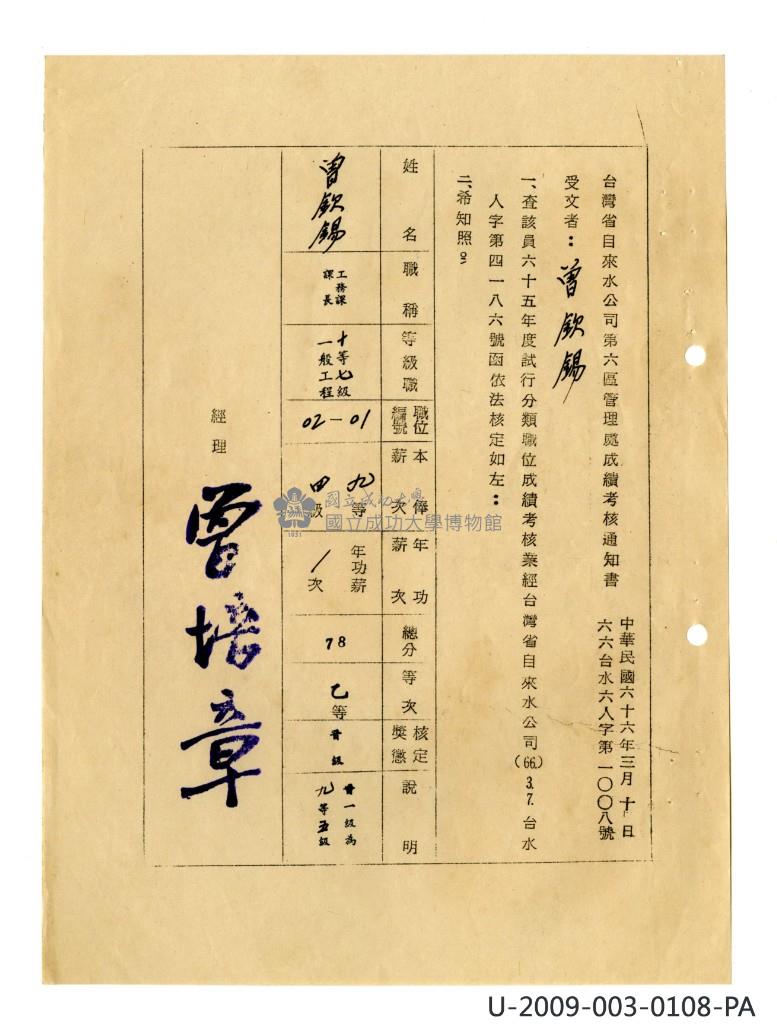 台灣省自來水公司第六區管理處成績考核通知書
中華民國六十六年三月十日
六六台水六人字第一〇〇八號
受文者：曾欽錫
一、查該員六十五年度試行分類職位成績考核業經台灣省自來水公司(66.)3.7.台水
人字第四一八六號函依法核定如左：
二、希知照。
姓名
職稱
等級職
職位編號
本俸薪次
年功薪次
總分
等次
核定獎懲
說明
曾欽錫
工務課
課長
十等七級
一般工程
02-01
九等
四級
年功薪
1次
78
乙等
晉級
晉一級為
九等五級
經理
曾培章
國立成功大學
國立成功大學博物館
1931
U-2009-003-0108-PA